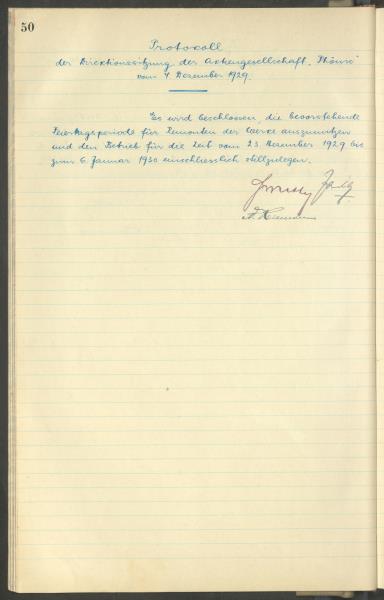 50
Protokoll
der Direktionssitzung der Aktiengesellschaft "Phönix"
vom 7. Dezember 1929.
Es wird beschlossen, die bevorstehende
Feiertagsperiode für Remonten der Werke auszunutzen
und den Betrieb für die Zeit vom 23. Dezember 1929 bis
zum 6. Januar 1930 einschliesslich stillzulegen.